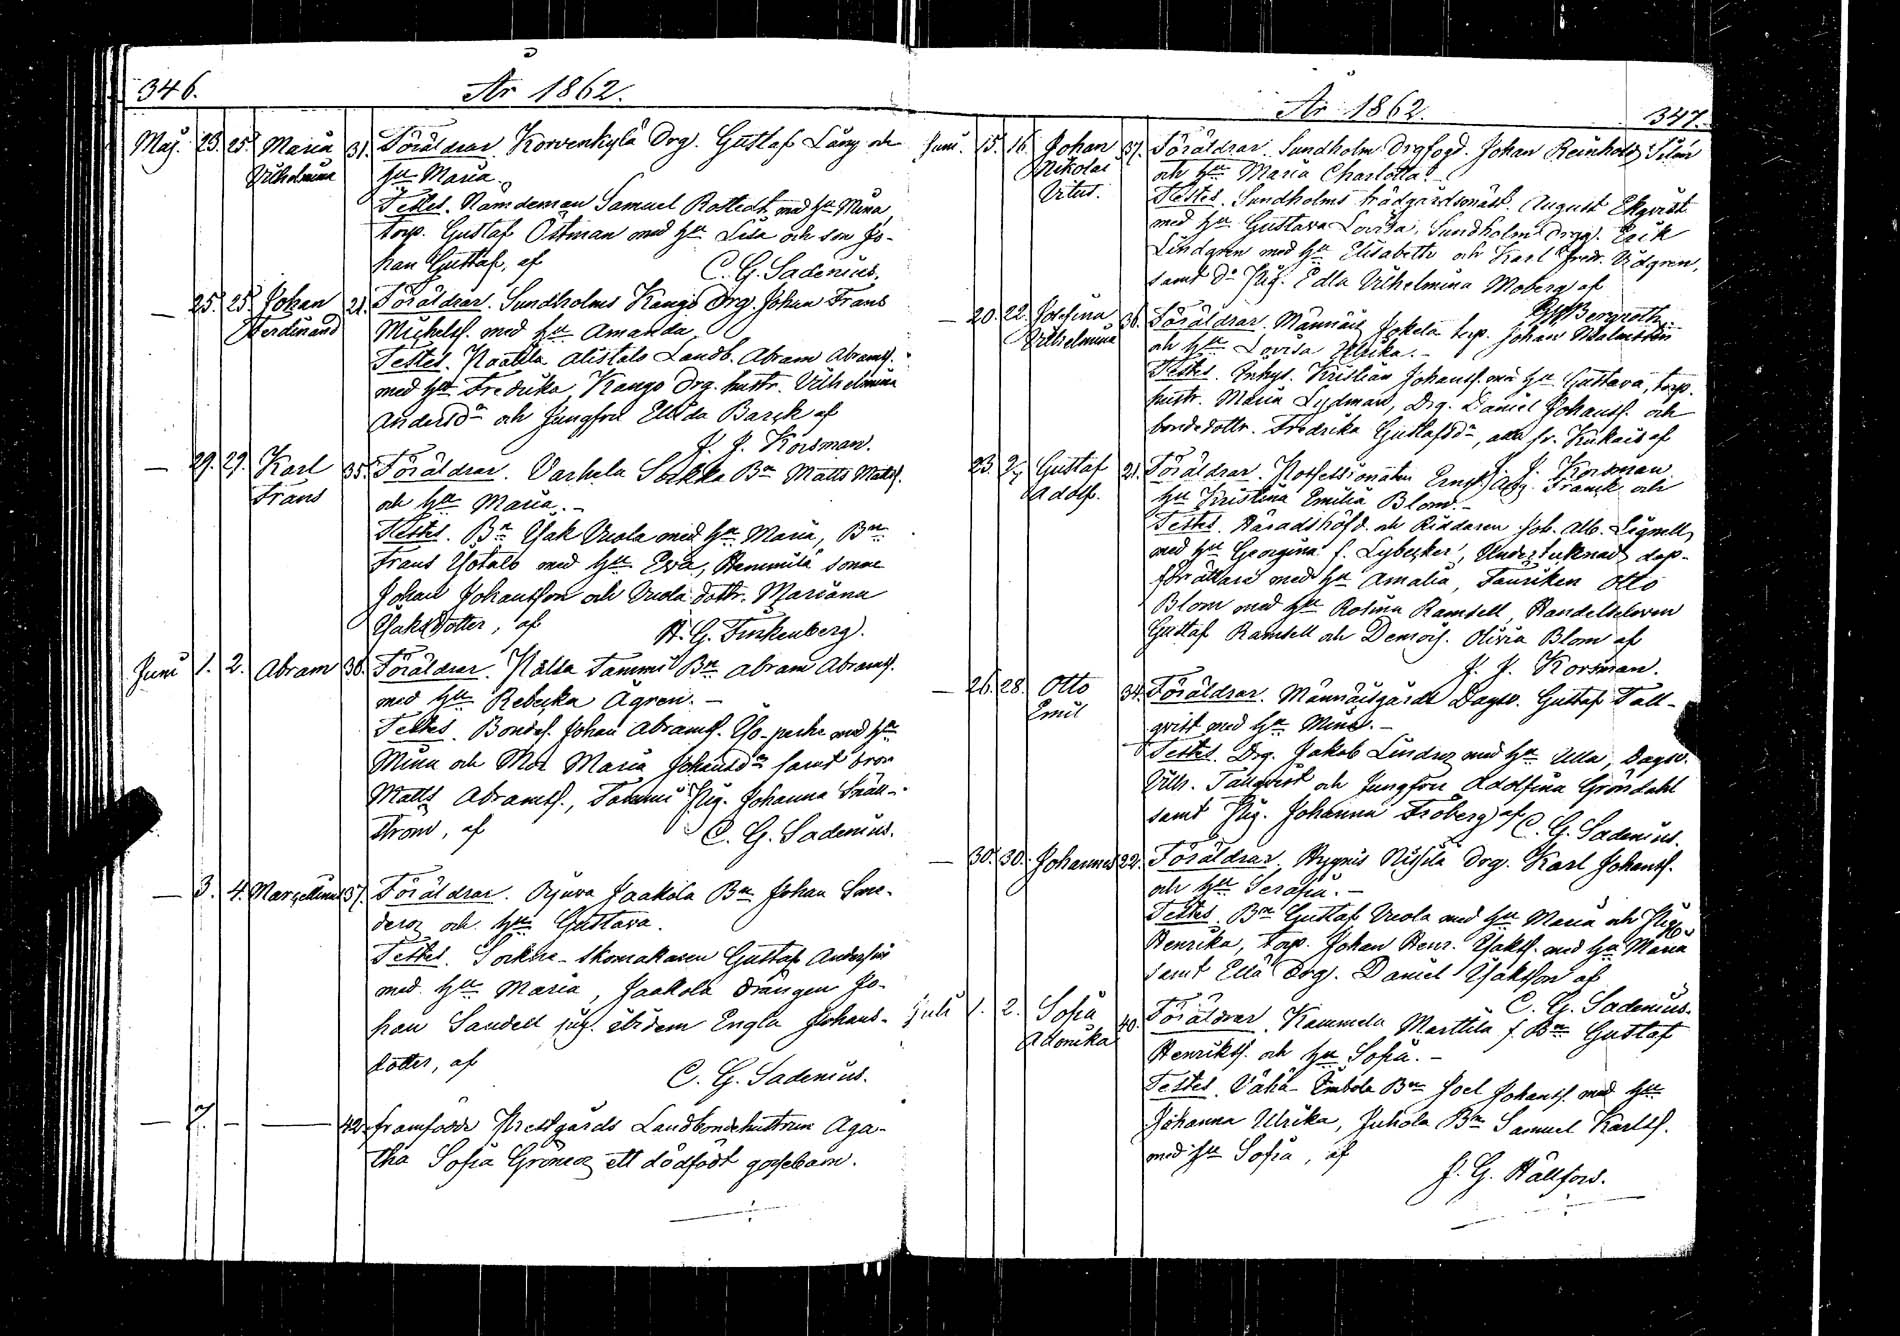 346.
År 1862.
Maj. 23. 25. Maria Vilhelmina 31. Föräldrar. Korvenkylä Drg. Gustaf Lång och
hu Maria.
Testes. Nämdeman Samuel Rostedt med hu Mina,
torp. Gustaf Östman med hu Lisa och son Jo-
han Gustaf, af C. G. Sadenius.
— 25. 25. Johan Ferdinand 21. Föräldrar. Sundholms Kango Drg. Johan Frans
Michelss. med hu Amanda
Testes. Alistalo Landb. Abram Abramss.
med hu Fredrika, Kango Drg. hustr. Vilhelmina
Andersdr och Jungfru Elida Barck af
J. J. Korsman.
— 29. 29. Karl Frans 35. Föräldrar. Varhela Sorkka Bn Matts Mattss.
och hu Maria. —
Testes. Bn Isak Uvola med hu Maria, Bn
Frans Isotalo med hu Eva, Hemmilä sonen
Johan Johansson och Uvola dottr. Mariana
Isaksdotter, af H. G. Finkenberg.
Juni 1. 2. Abram 38. Föräldrar. Tammi Bn Abram Abramss.
med hu Rebecka Ågren. —
Testes. Bondes. Johan Abramss. Iso-perhe med hu
Mina och Mor Maria Johansdr samt bror
Matts Abramss., Tammi Pig. Johanna Snäll-
ström, af C. G. Sadenius.
— 3. 4. Marcellinus 37. Föräldrar. Jaakola Bn Johan Sme-
deroz och hu Gustava.
Testes. Sorkka-skomakaren Gustaf Andersson
med hu Maria, Jaakola Drängen Jo-
han Sandell pig. ibidem Engla Johans-
dotter, af
C. G. Sadenius.
— 7. — — 42. framfödde Prestgårds Landbondehustrun Aga-
tha Sofia Grönroz ett dödfödt gossebarn.
År 1862.
347.
Juni. 15. 16. Johan Nikolai Vitus. 37. Föräldrar. Sundholm Drgfogd. Johan Reinhold Silén
och hu Maria Charlotta. —
Testes. Sundholms trädgårdsmäst. August Ekqvist
med hu Gustava Lovisa, Sundholms Drgg. Erik
Lindgren med hu Elisabeth och Karl Fredr. Vidgren,
samt d:o Pig. Edla Vilhelmina Moberg af
Bergroth.
— 20. 22. Josefina Vilhelmina 36. Föräldrar. Männäis Jokela torp. Johan Malmstén
och hu Lovisa Ulrika. —
Testes. Inhys. Kristian Johanss. med hu Gustava, torp.
hustr. Maria Lydman, Drg. Daniel Johanss. och
bondedottr. Fredrika Gustafsdr, alla fr. Kukais af
J. J. Korsman
23. 24 Gustaf Adolf. 21. Föräldrar. Possessionaten Ernst Aug. Franck och
hu Kristina Emilia Blom. —
Testes. Häradshöfd. och Riddaren Joh. Alb. Lignell
med hu Georgina f. Lybecker, Undertecknad dop-
förrättare med hu Amalia, Fänriken Otto
Blom med hu Rosina Ramsell, Handelseleven
Gustaf Ramsell och Demois. Olivia Blom af
J. J. Korsman.
— 26. 28. Otto Emil 34. Föräldrar. Männäisgårds Dagsv. Gustaf Tall-
qvist med hu Mina. —
Testes. Drg. Jakob Lindroz med hu Ulla, Dagsv.
Vilh. Tallqvist och Jungfru Adolfina Gröndahl
samt Pig. Johanna Fröberg af
C. G. Sadenius.
— 30. 30. Johannes 22. Föräldrar. Drg. Karl Johanss.
och hu Serafia. —
Testes. Bn Gustaf Uvola med hu Maria och Pig.
Henrika, torp. Johan Henr. Isakss. med hu Maria
samt Ellä Drg. Daniel Isaksson af
C. G. Sadenius.
Juli 1. 2. Sofia Adonika 40. Föräldrar. Kammela Marttila f. Bn Gustaf
Henrikss. och hu Sofia. —
Testes. Vähä-Embola Bn Joel Johanss. med hu
Johanna Ulrika, Juhola Bn Samuel Karlss.
med hu Sofia, af
J. G. Hällfors.